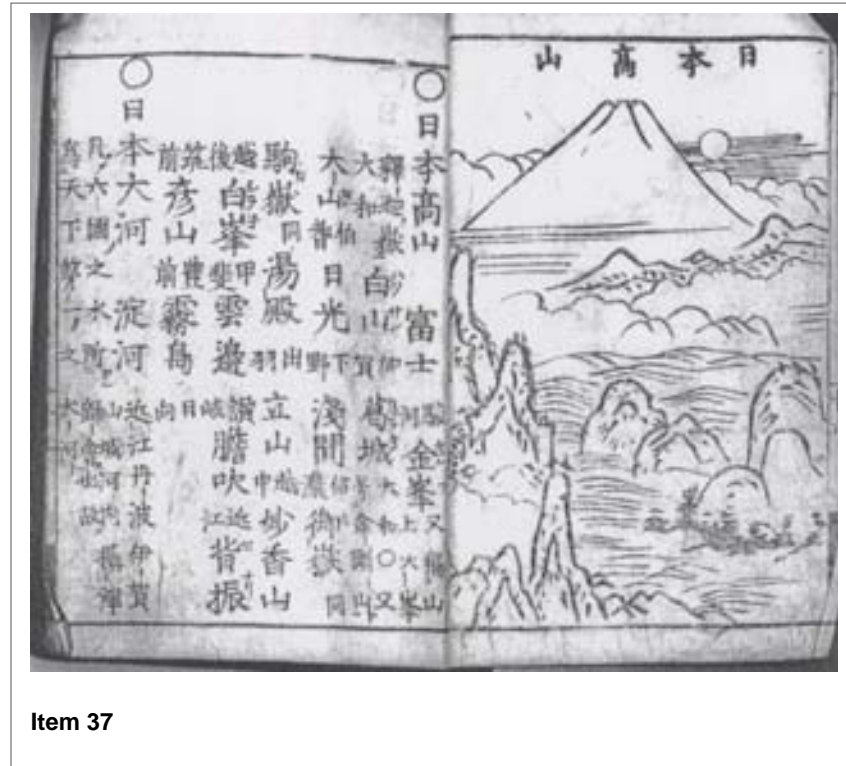 日本高山
○日本高山 富士 金峯
大和 白山 葛城 大和○又号金剛山
大山 伯耆 日光 下野 淺間 信濃 御嶽 同
駒嶽 同 湯殿 出羽 立山 越中 妙香山
越後 白峯 甲斐 雲邊 讃岐 膽吹 近江 背振
筑前 彦山 豊前 霧島 日向
○日本大河 淀河 近江丹波伊賀
山城河内攝津
凡六國之水所 會也故
為天下第一之大河
Item 37